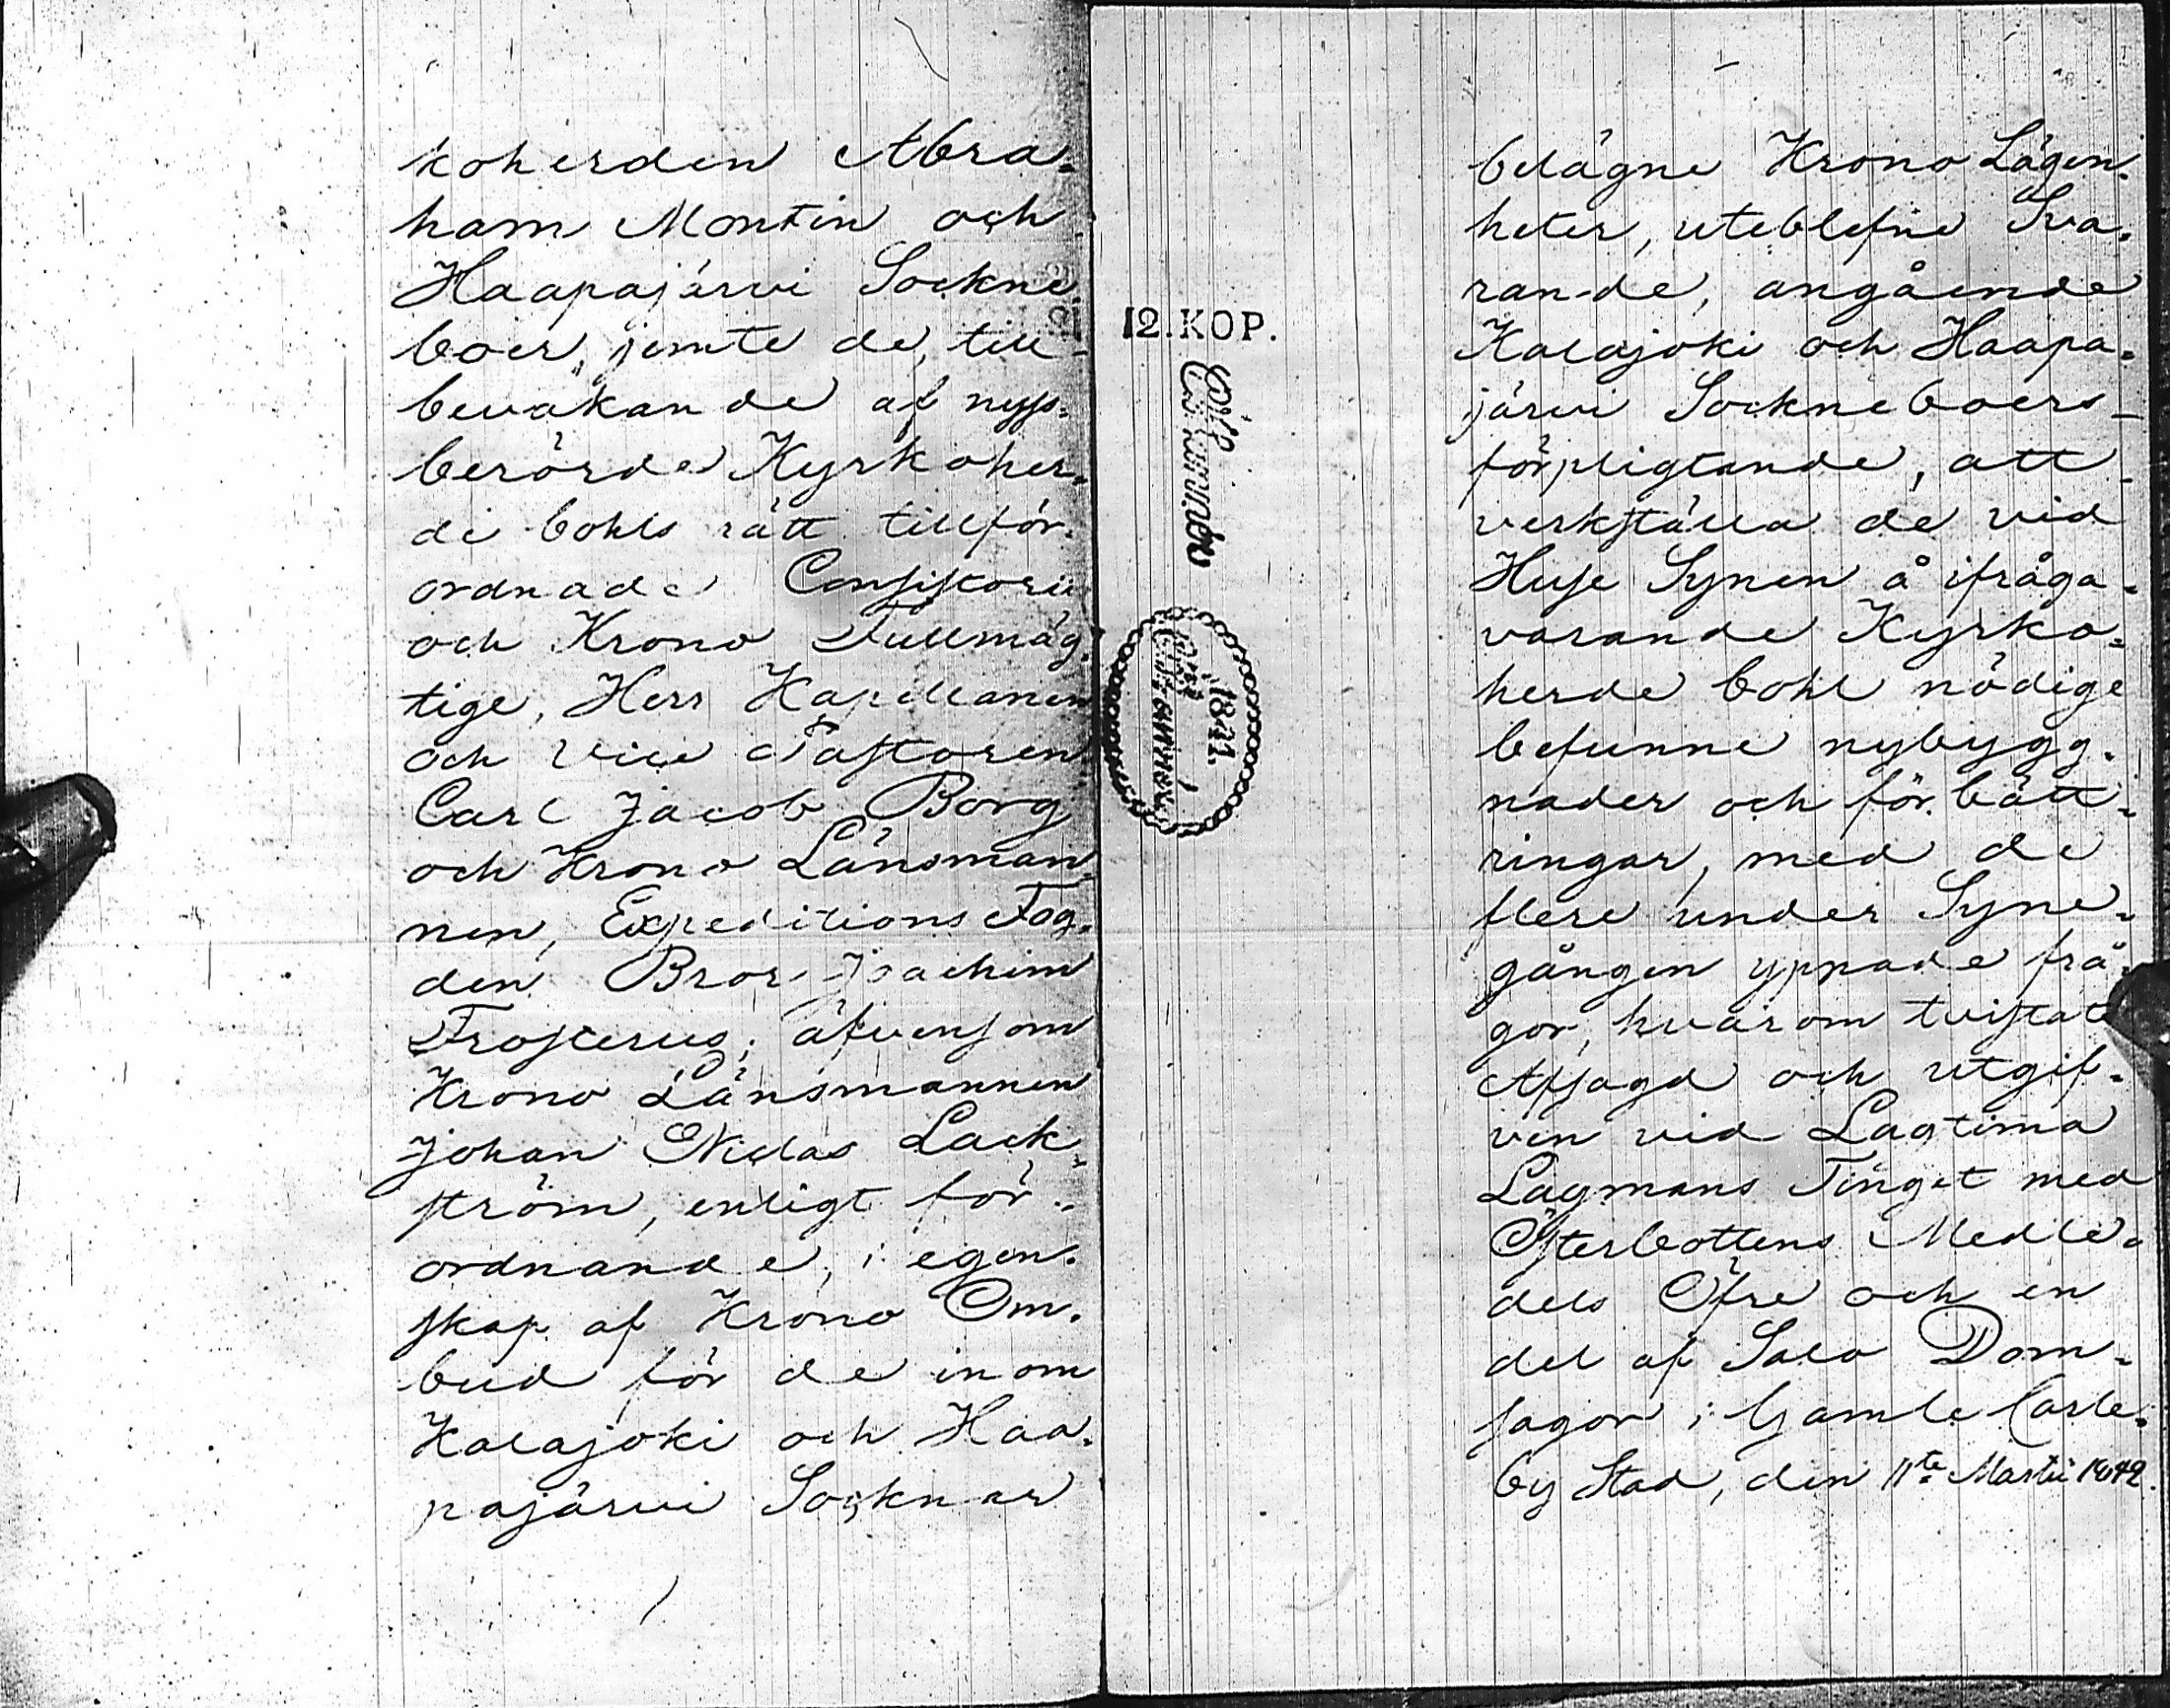 koherden Abra-
ham Montin och
Haapajärvi Sockne
boer, jemte de, till-
bevakande af nyss-
berörde Kyrkoher-
de bohls rätt tillför-
ordnade Consistorii
och Krono Fullmäg-
tige, Herr Kapellanen
och Vice Pastoren
Carl Jacob Borg
och Krono Länsman-
nen, Expeditions Fog-
den Bror Joachim
Frosterus; äfvensom
Krono Länsmannen
Johan Niclas Lack-
ström, enligt för-
ordnande, i egen-
skap af Krono Om-
bud för de inom
Kalajoki och Haa-
pajärvi Socknar
12. KOP.
1841.
belägne Krono Lägen-
heter, uteblefne Sva-
rande, angående
Kalajoki och Haapa-
järvi Sockneboers
förpligtande, att
verkställa de vid
Huse Synen å ifråga-
varande Kyrko-
herde bohl nödige
befunne nybygg-
nader och förbätt-
ringar, med de
flere under Syne-
gången yppade frå-
gor, hvarom tvistats
Afsagd och utgif-
ven vid Lagtima
Lagmans Tinget med
Österbottens Medle-
dels Öfre och en
del af Salo Dom-
sagor i Gamle Carle-
by Stad, den 11te Martii 1842.